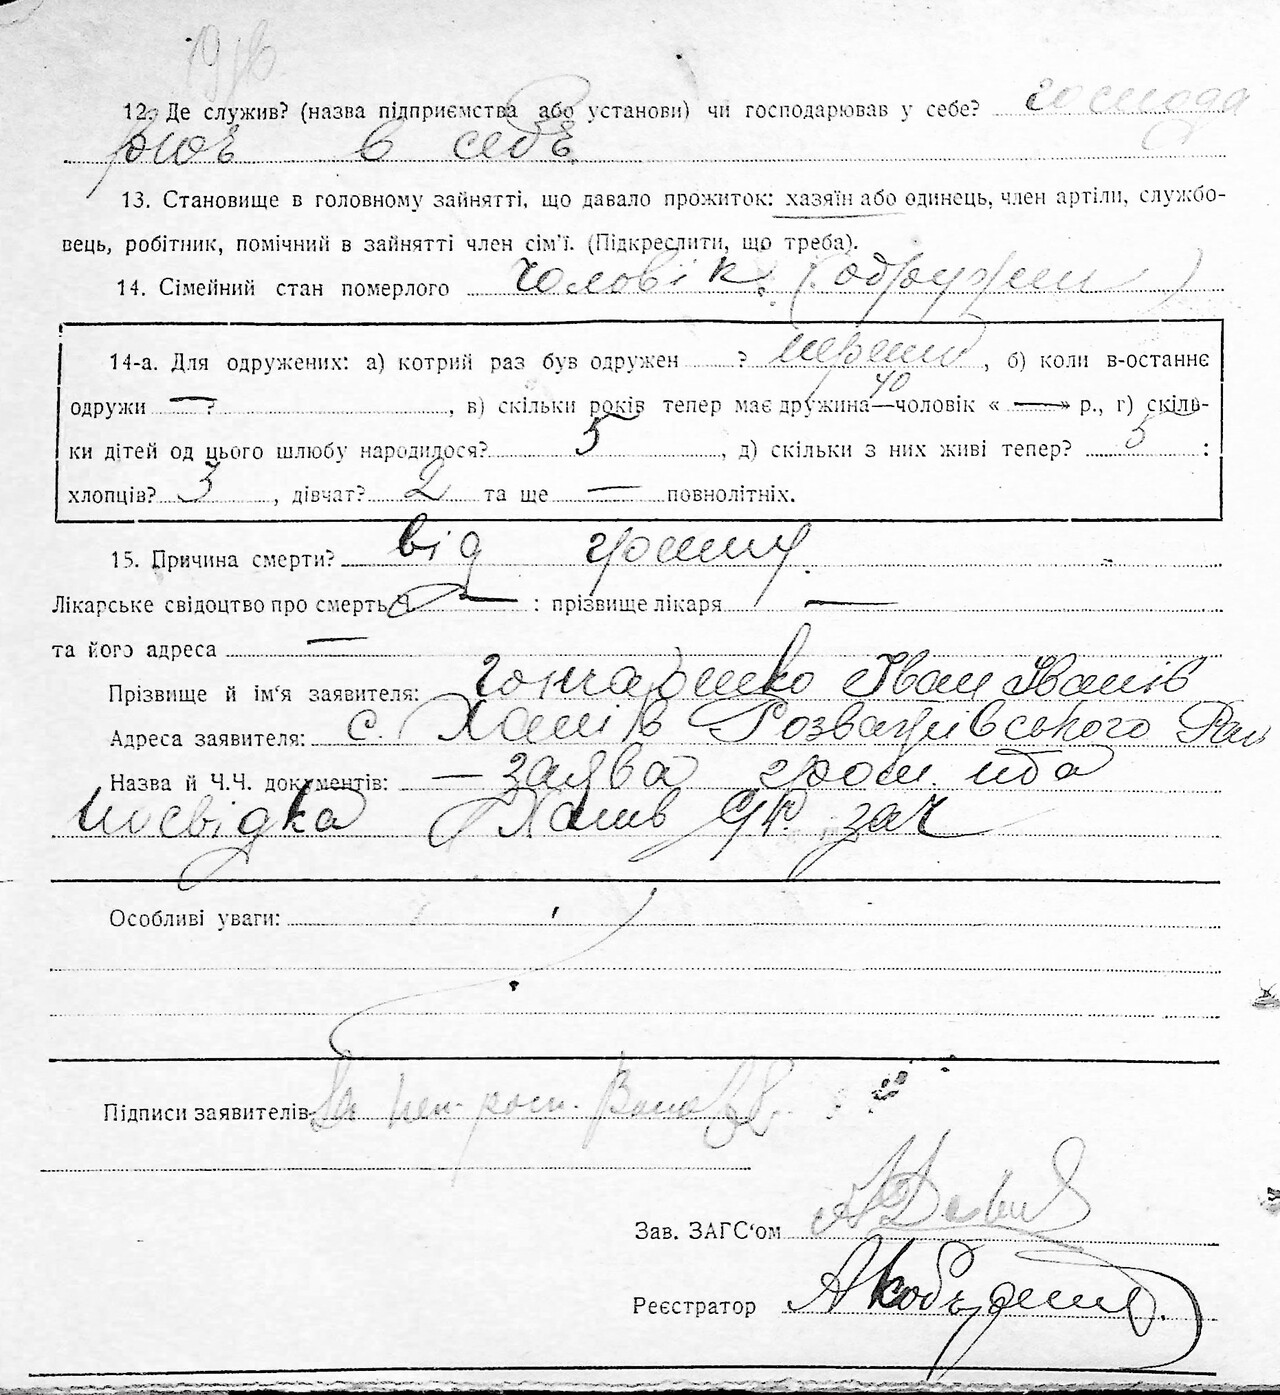 12. Де служив? (назва підприємства або установи) чи господарював у себе? господа
рює в себе
13. Становище в головному зайнятті, що давало прожиток: хазяїн або одинець, член артіли, службо-
вець, робітник, помічний в зайнятті член сім'ї. (Підкреслити, що треба).
14. Сімейний стан померлого чоловік (одружен)
14-а. Для одружених: а) котрий раз був одружен ? перший, б) коли в-останнє
40
одружи — ?, в) скільки років тепер має дружина—чоловік « — » р., г) скіль-
ки дітей од цього шлюбу народилося? 5, д) скільки з них живі тепер? 5 :
хлопців? 3, дівчат? 2 та ще — повнолітніх.
15. Причина смерти? від
Лікарське свідоцтво про смерть — : прізвище лікаря —
та його адреса —
Прізвище й ім'я заявителя: Гончаренко Іван Іванів
Адреса заявителя: с. Розважівського Рай
Назва й Ч.Ч. документів: — заява
посвідка
Особливі уваги:
Підписи заявителів
Зав. ЗАГС'ом
Реєстратор